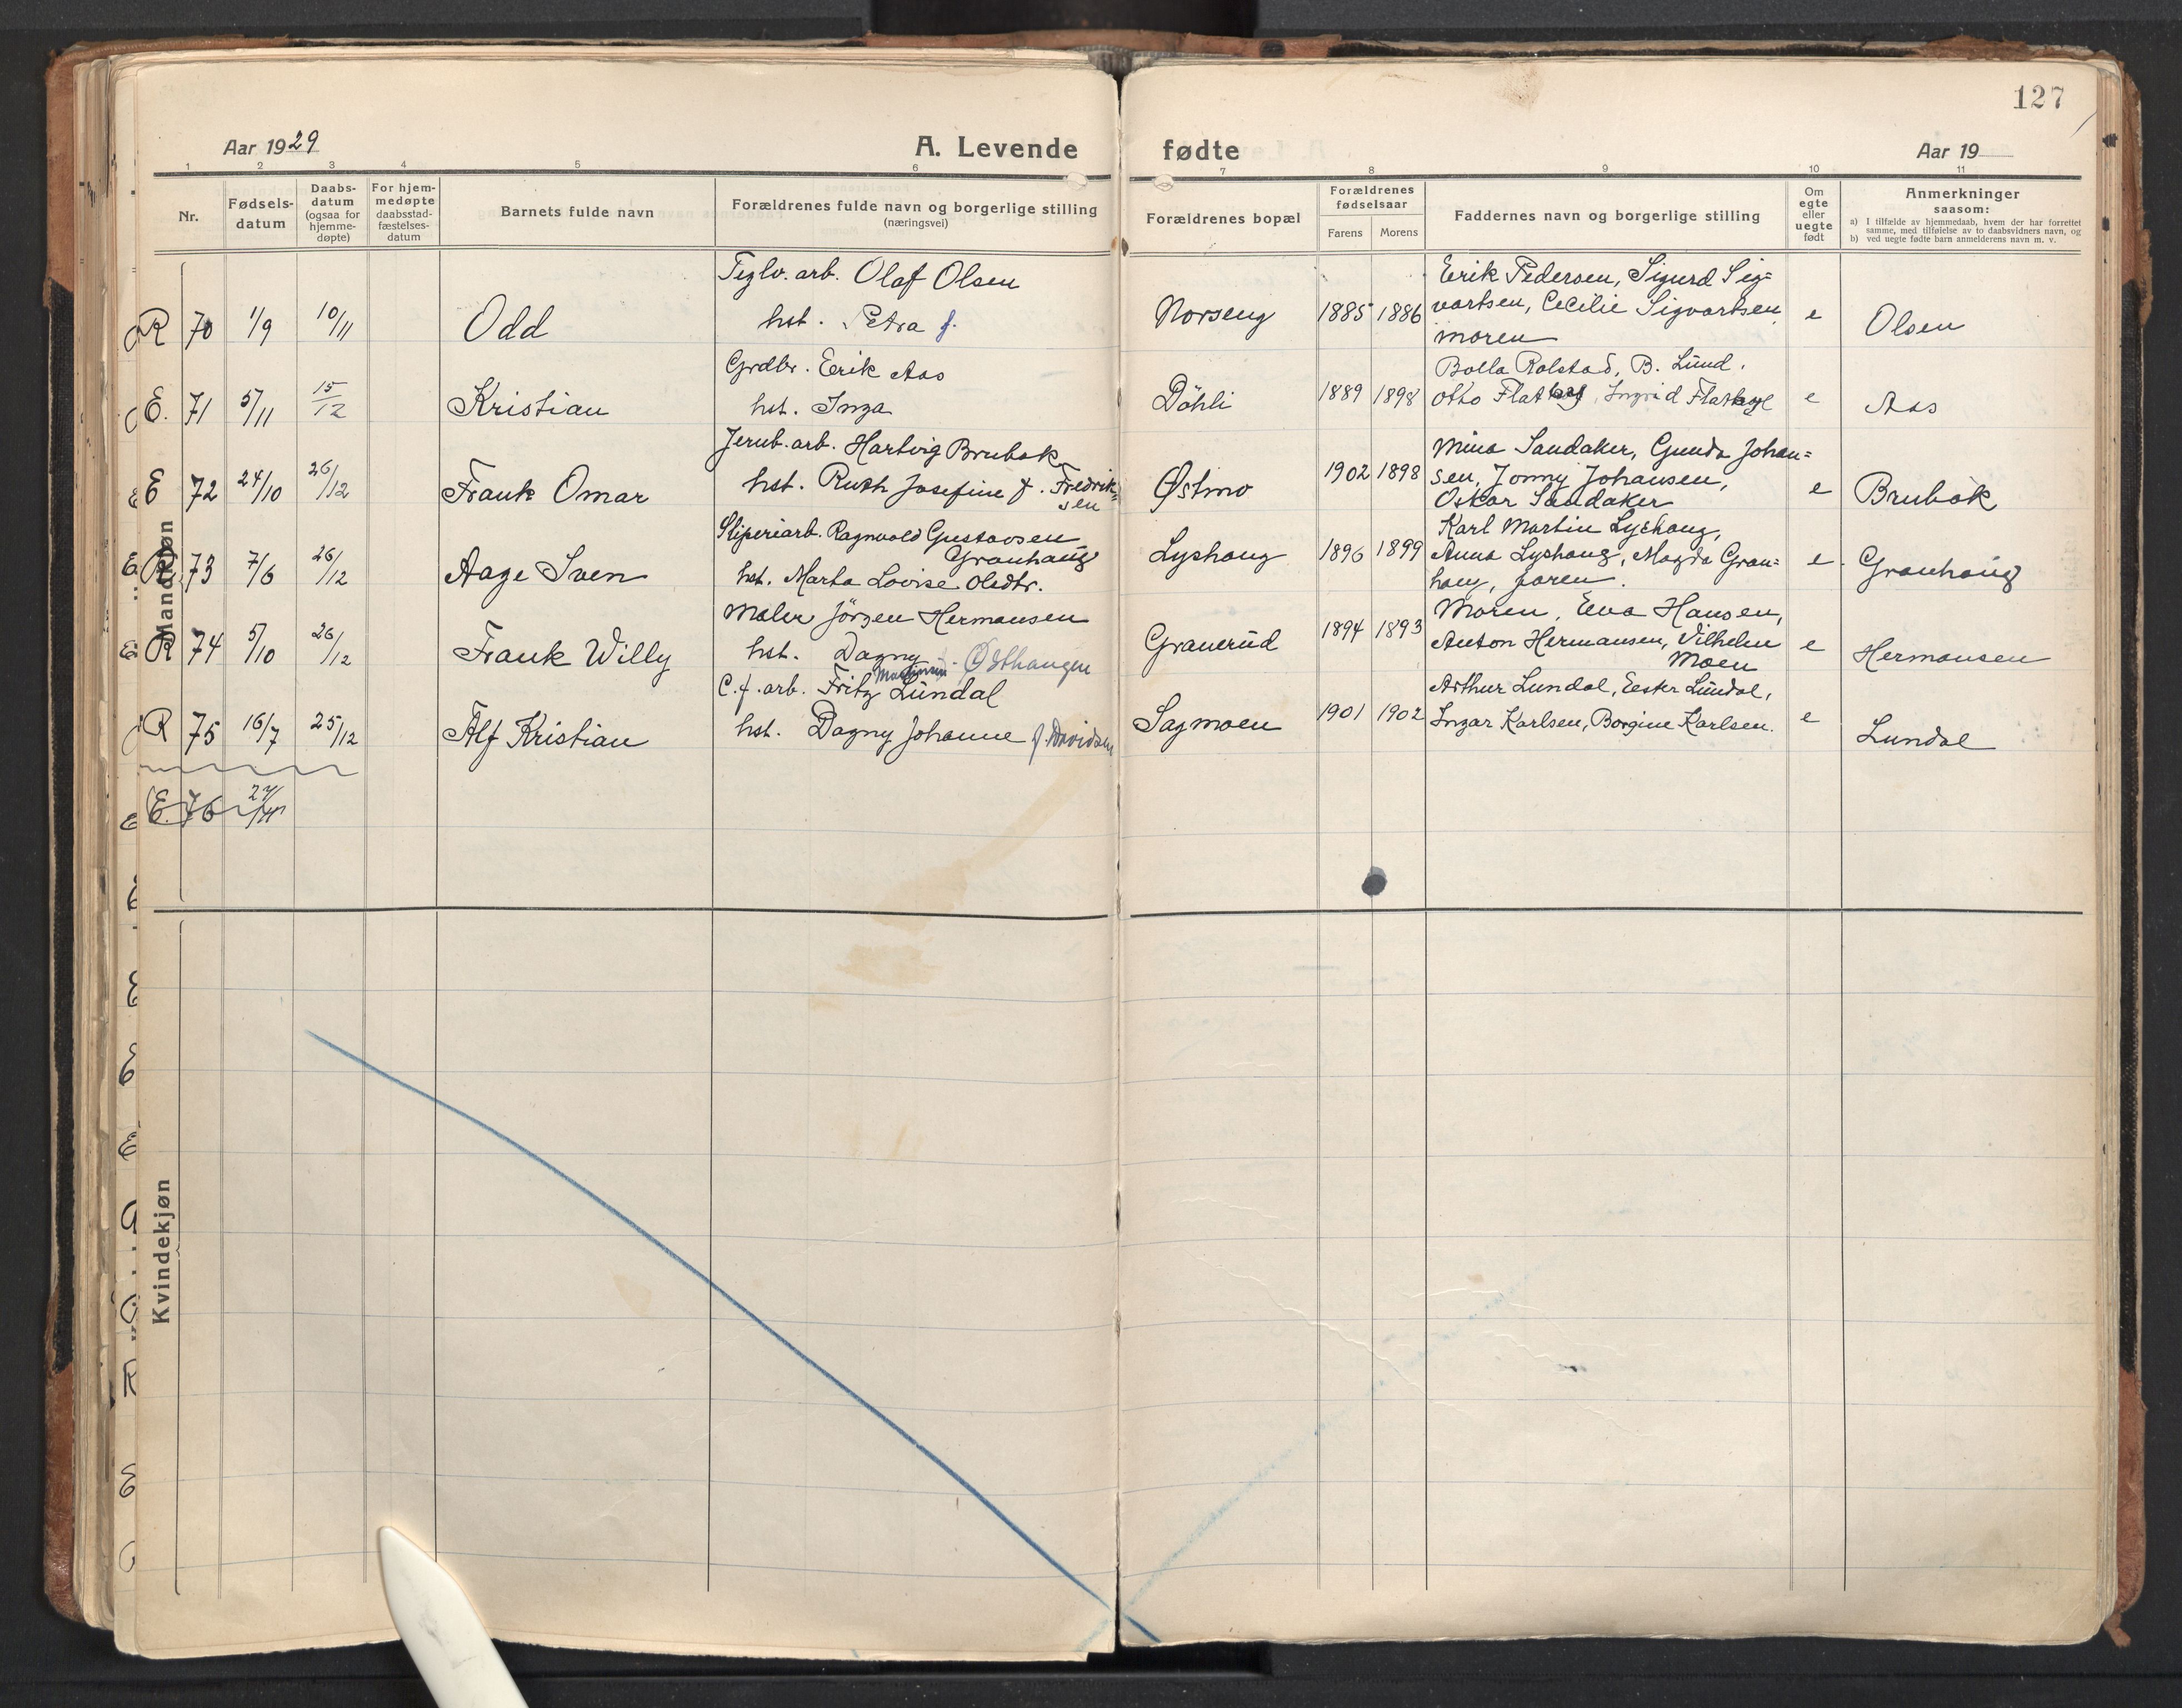 127
Aar 1929 A. Levende fødte Aar 19
1 2 3 4 5 6 7 8 9 10 11
Nr. Fødsels-datum Daabs-datum (ogsaa for hjemme-døpte) For hjem-medøpte daabsstad-fæstelses-datum Barnets fulde navn Forældrenes fulde navn og borgerlige stilling (næringsvei) Forældrenes bopæl Forældrenes fødselsaar Farens Morens Faddernes navn og borgerlige stilling Om egte eller uegte født Anmerkninger saasom:
a) I tilfælde av hjemmedaab, hvem der har forrettet samme, med tilføielse av to daabsvidners navn, og
b) ved uegte fødte barn anmelderens navn m. v.
Mandkjøn
Teglv. arb. Olaf Olsen Erik Pedersen, Sigurd Sig=
R 70 1/9 10/11 Odd hst. Petra f. Norseng 1885 1886 vartsen, Cecilie Sigvartsen e Olsen
moren
Grdbr. Erik Aas Bolla Rolstad, B. Lund.
E. 71 5/11 15/12 Kristian hst. Inga Döhli 1889 1898 Otto Flathag, Ingrid e Aas
Jernb. arb. Hartvig Brubak Mina Sandaker, Gunda Johan=
E 72 24/10 26/12 Frank Omar hst. Ruth Josefine f. Fredrik= Østmo 1902 1898 sen, Jonny Johansen, e Brubak
sen Oskar Sandaker
Sliperiarb. Ragnvald Gustavsen Karl Martin Lyshaug,
Granhaug
R 73 7/6 26/12 Aage Sven hst. Marta Lovise Olsdtr. Lyshaug 1896 1899 Anna Lyshaug, Magda Gran= e. Granhaug
haug, faren.
Maler Jörgen Hermansen Moren, Eva Hansen,
R 74 5/10 26/12 Frank Willy hst. Dagny Østhaugen Granerud 1894 1893 Anton Hermansen, Vilhelm e Hermansen
Moen
C. f. arb. Fritz Lundal Arthur Lundal, Ester Lundal,
R 75 16/7 25/12 Alf Kristian hst. Dagny Johanne f. Davidsen Sagmoen 1901 1902 Ingar Karlsen, Borgine Karlsen. e Lundal
E. 76
Kvindekjøn